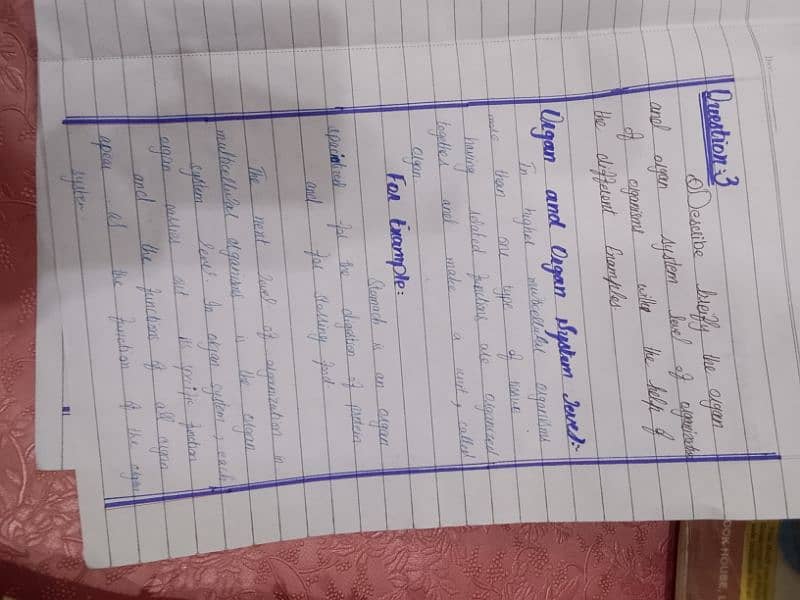 Question:3
Q)Describe breifly the organ
and organ system level of organization
of organisms with the help of
the different Examples.
Organ and Organ System Level:-
In higher multicellular organisms
more than one type of tissue
having related functions are organized
together and make a unit, called
organ
For Example:
Stomach is an organ
specialized for the digestion of protein
and for storing food
The next level of organization in
multicellular organisms is the organ
system level. In organ system, each
organ carries out its specific function
and the function of all organ
apear as the function of the organ
system